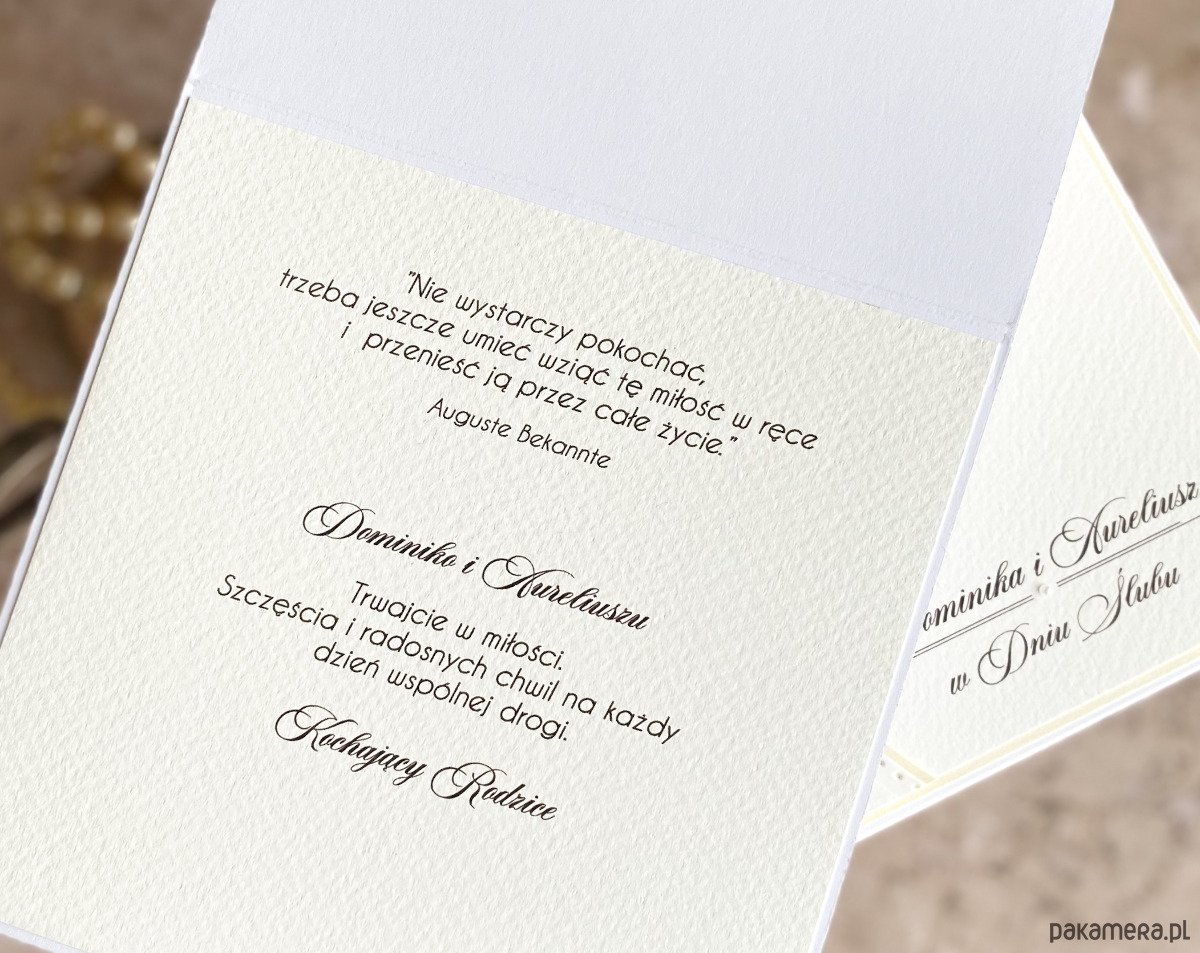 "Nie wystarczy pokochać,
trzeba jeszcze umieć wziąć tę miłość w ręce
i przenieść ją przez całe życie."
Auguste Bekannte
Dominiko i Aureliuszu
Trwajcie w miłości.
Szczęścia i radosnych chwil na każdy
dzień wspólnej drogi.
Kochający Rodzice
ominika i Aureliusz
w Dniu Ślubu
pakamera.pl